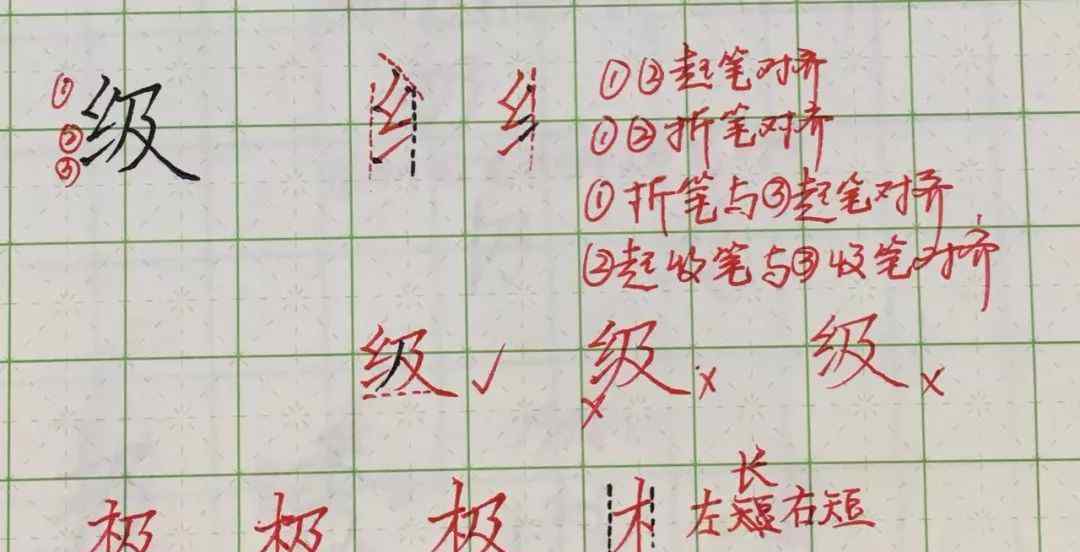 ① ② ③ 级 ①②起笔对齐
①②折笔对齐
①折笔与③起笔对齐
②起收笔与③收笔对齐
级 ✓ 级 × × 级 ×
长
极 极 极 左短右短